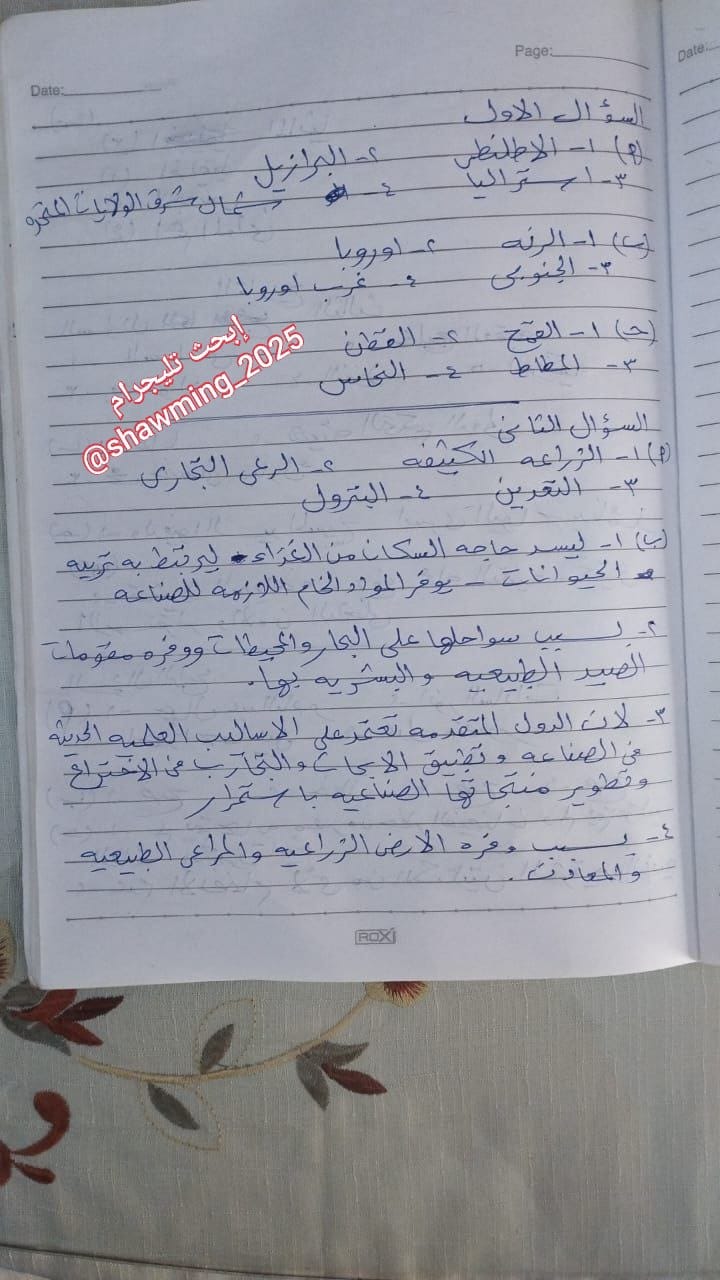 Date:
Page:
Date:
السؤال الاول
(أ) ١- الاطلنطى ٢- البرازيل
٣- استراليا ٤- شمال شرق الولايات المتحده
(ب) ١- الرنه ٢- اوروبا
٣- الجنوبى ٤- غرب اوروبا
(حـ) ١- القمح ٢- القطن
٣- المطاط ٤- النحاس
إبحث تليجرام
@shawming_2025
السؤال الثانى
(أ) ١- الزراعه الكثيفه ٢- الرعى التجارى
٣- التعدين ٤- البترول
(ب) ١- ليسد حاجه السكان من الغذاء - ليرتبط به تربيه
الحيوانات - يوفر المواد الخام اللازمة للصناعه
٢- بسبب سواحلها على البحار والمحيطات ووفره مقومات
الصيد الطبيعيه والبشريه بها.
٣- لان الدول المتقدمه تعتمد على الاساليب العلميه الحديثه
فى الصناعه وتطبيق الابحاث والتجارب فى الاختراع
وتطوير منتجاتها الصناعيه باستمرار
٤- بسبب وفره الارض الزراعيه والمراعى الطبيعيه
والمعادن.
ROXI